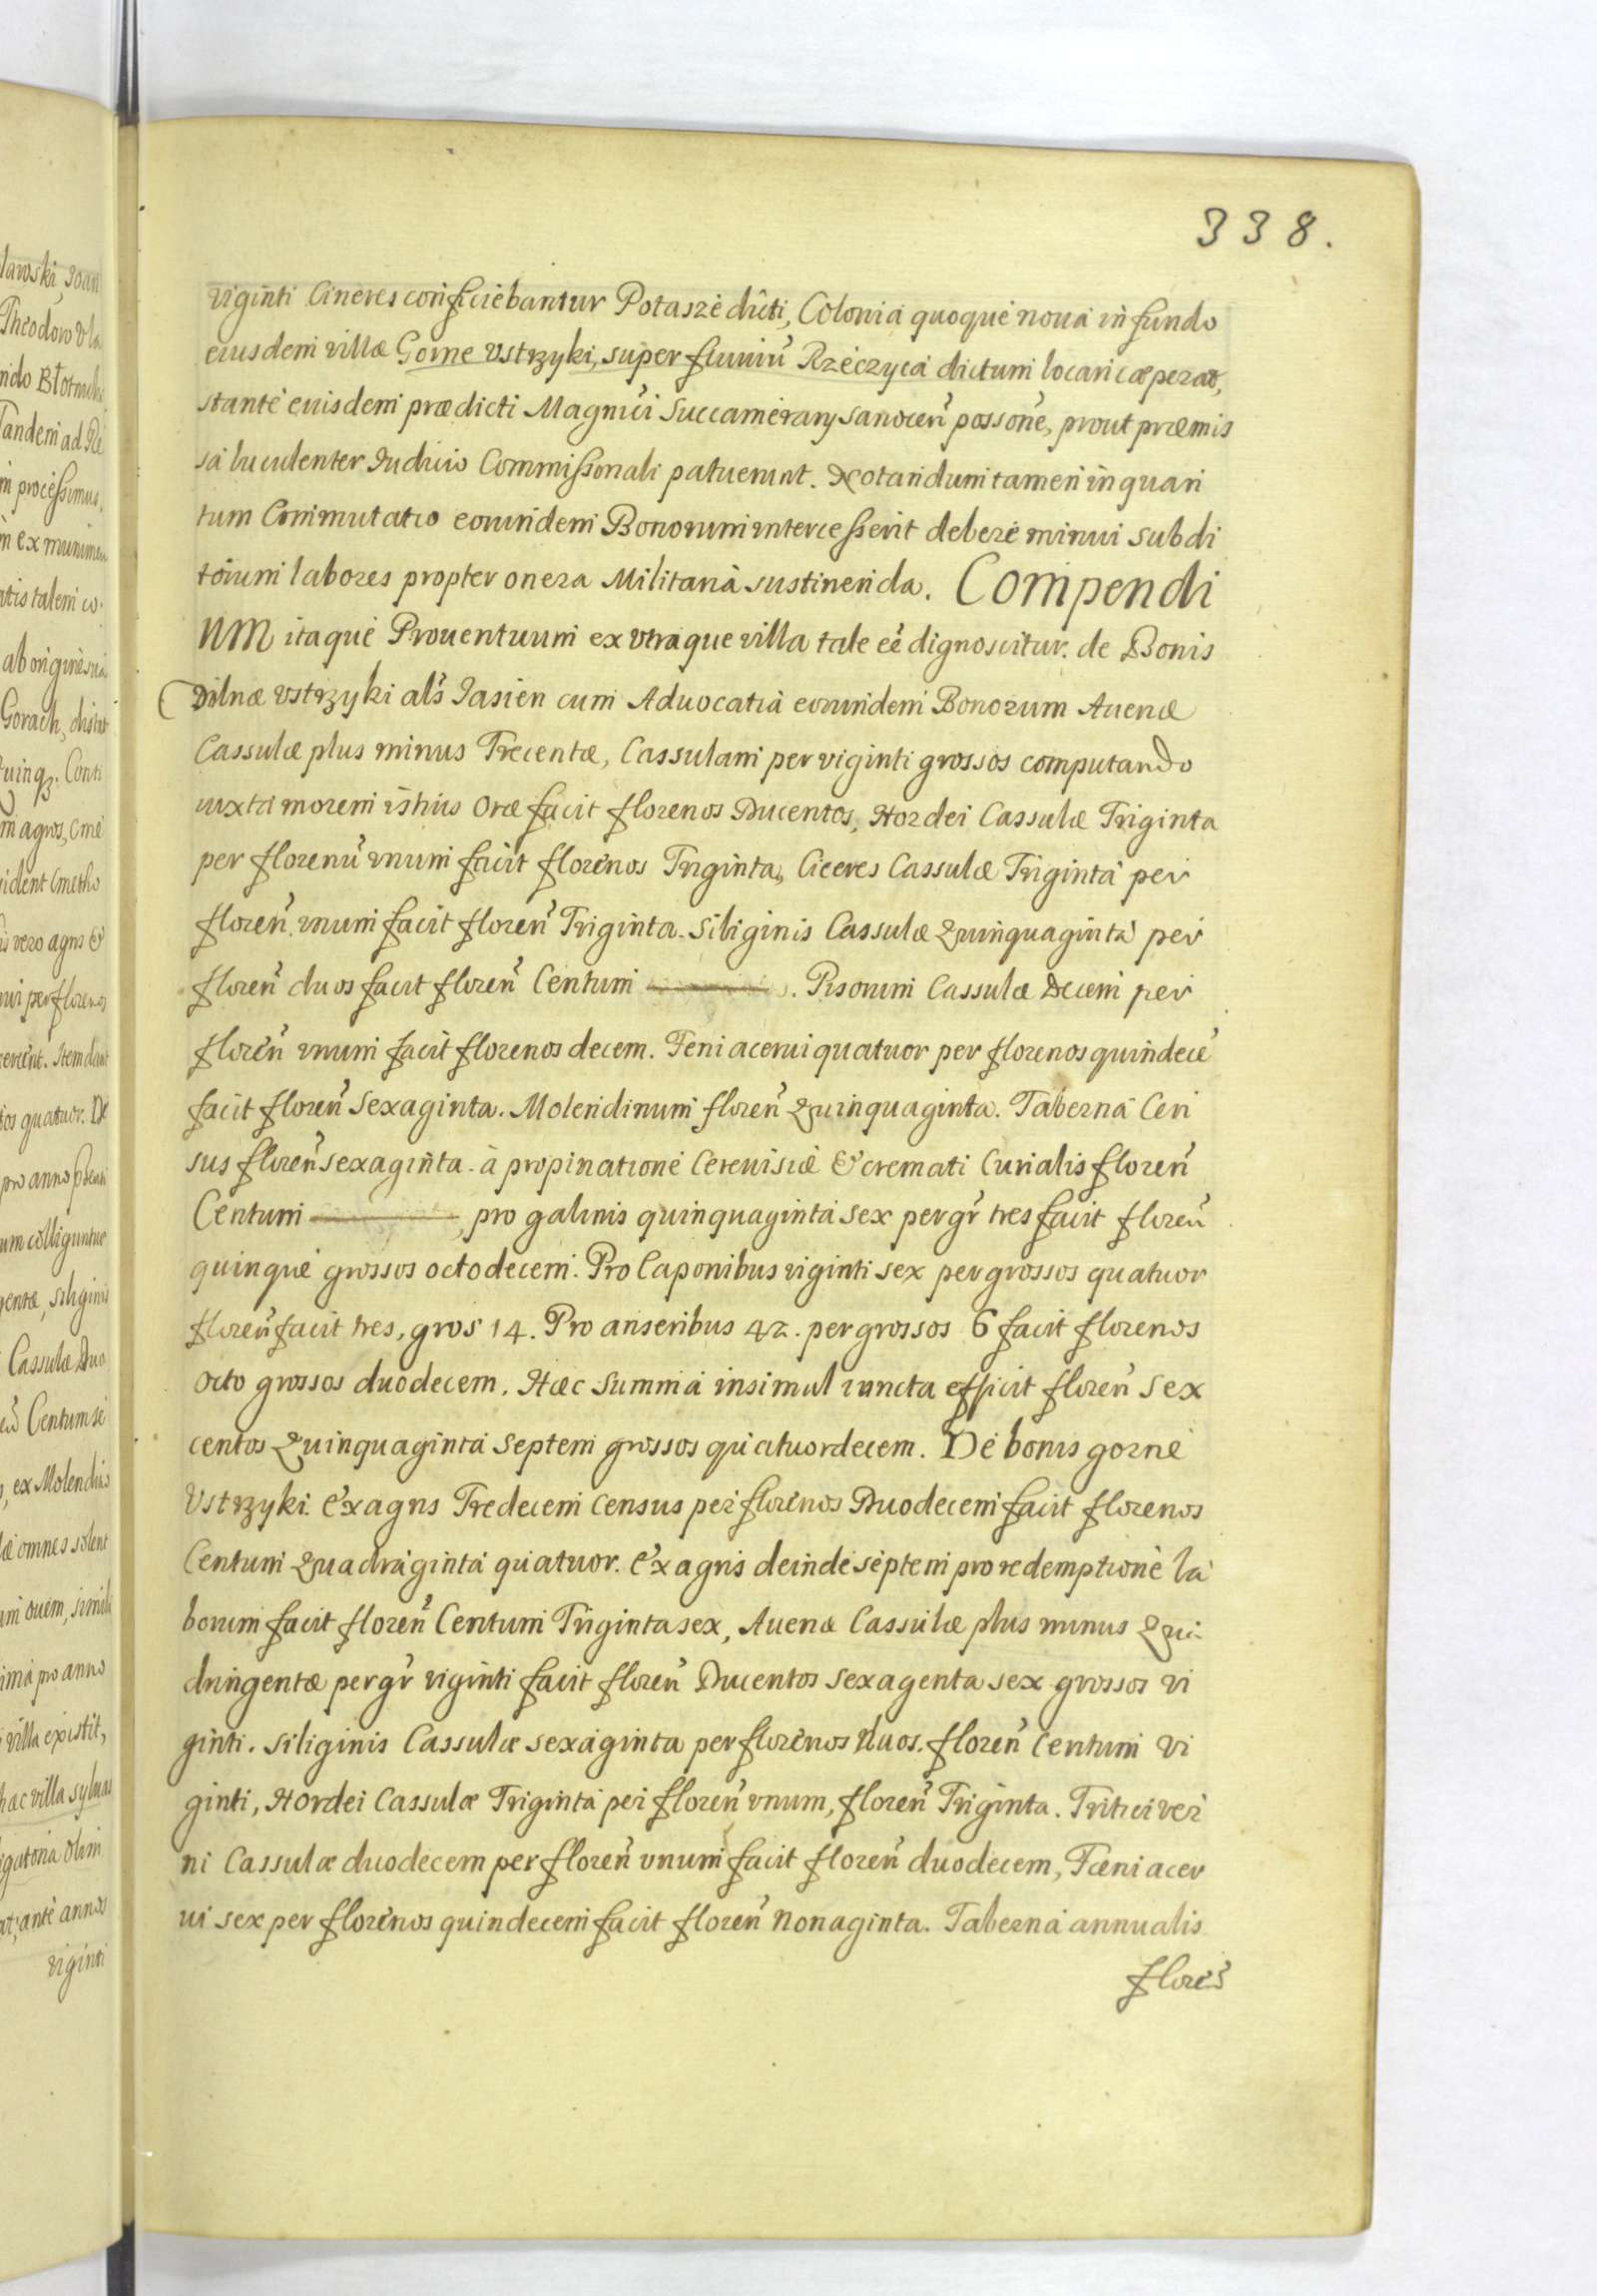 338.
viginti Cineres conficiebantur Potasze dicti, Colonia quoque noua in fundo
eiusdem villæ Gorne Vstrzyki, super fluuiũ Rzeczyca dictum locari cæperat,
stante eiusdem prædicti Magnĩci Succamerarij Sanoceñ possoñe, prout præmis
sa luculenter Iudicio Commissionali patuerunt. Notandum tamen in quan
tum Commutatio eorundem Bonorum intercesserit debere minui subdi
torum labores propter onera Militaria sustinenda. Compendi
um itaque Prouentuum ex vtraque villa tale eẽ dignoscitur. de Bonis
Dolnæ Vstrzyki als Jasien cum Aduocatia eorundem Bonorum Auenæ
Cassulæ plus minus Trecentæ, Cassulam per viginti grossos computando
iuxta morem istius oræ facit florenos Ducentos, Hordei Cassulæ Triginta
per florenũ vnum facit florenos Triginta, Ciceres Cassulæ Triginta per
floreñ vnum facit floreñ Triginta. Siliginis Cassulæ Quinquaginta per
floreñ duos facit floreñ Centum . Pisorum Cassulæ Decem per
floreñ vnum facit florenos decem. Feni acerui quatuor per florenos quindecẽ
facit floreñ Sexaginta. Molendinum floreñ Quinquaginta. Taberna Cen
sus floreñ sexaginta. à propinatione Cereuisiæ & cremati Curialis floreñ
Centum , pro galinis quinquaginta sex per gr̃ tres facit floreñ
quinque grossos octodecem. Pro Caponibus viginti sex per grossos quatuor
floreñ facit tres, gros 14. Pro anseribus 42. per grossos 6 facit florenos
octo grossos duodecem. Hæc Summa insimul iuncta efficit floreñ Sex
centos Quinquaginta Septem grossos quatuordecem. De bonis gorne
Vstrzyki. Ex agris Tredecem census per florenos Duodecem facit florenos
Centum Quadraginta quatuor. Ex agris deinde septem pro redemptione la
borum facit floreñ Centum Triginta sex, Auenæ Cassulæ plus minus Qua
dringentæ per gr̃ viginti facit floreñ Ducentos sexagenta sex grossos vi
ginti. Siliginis Cassulæ sexaginta per florenos duos. floreñ Centum vi
ginti, Hordei Cassulæ Triginta per floreñ vnum, floreñ Triginta. Tritici ver
ni Cassulæ duodecem per floreñ vnum facit floreñ duodecem, Fæni acer
ui sex per florenos quindecem facit floreñ nonaginta. Taberna annualis
floreñ